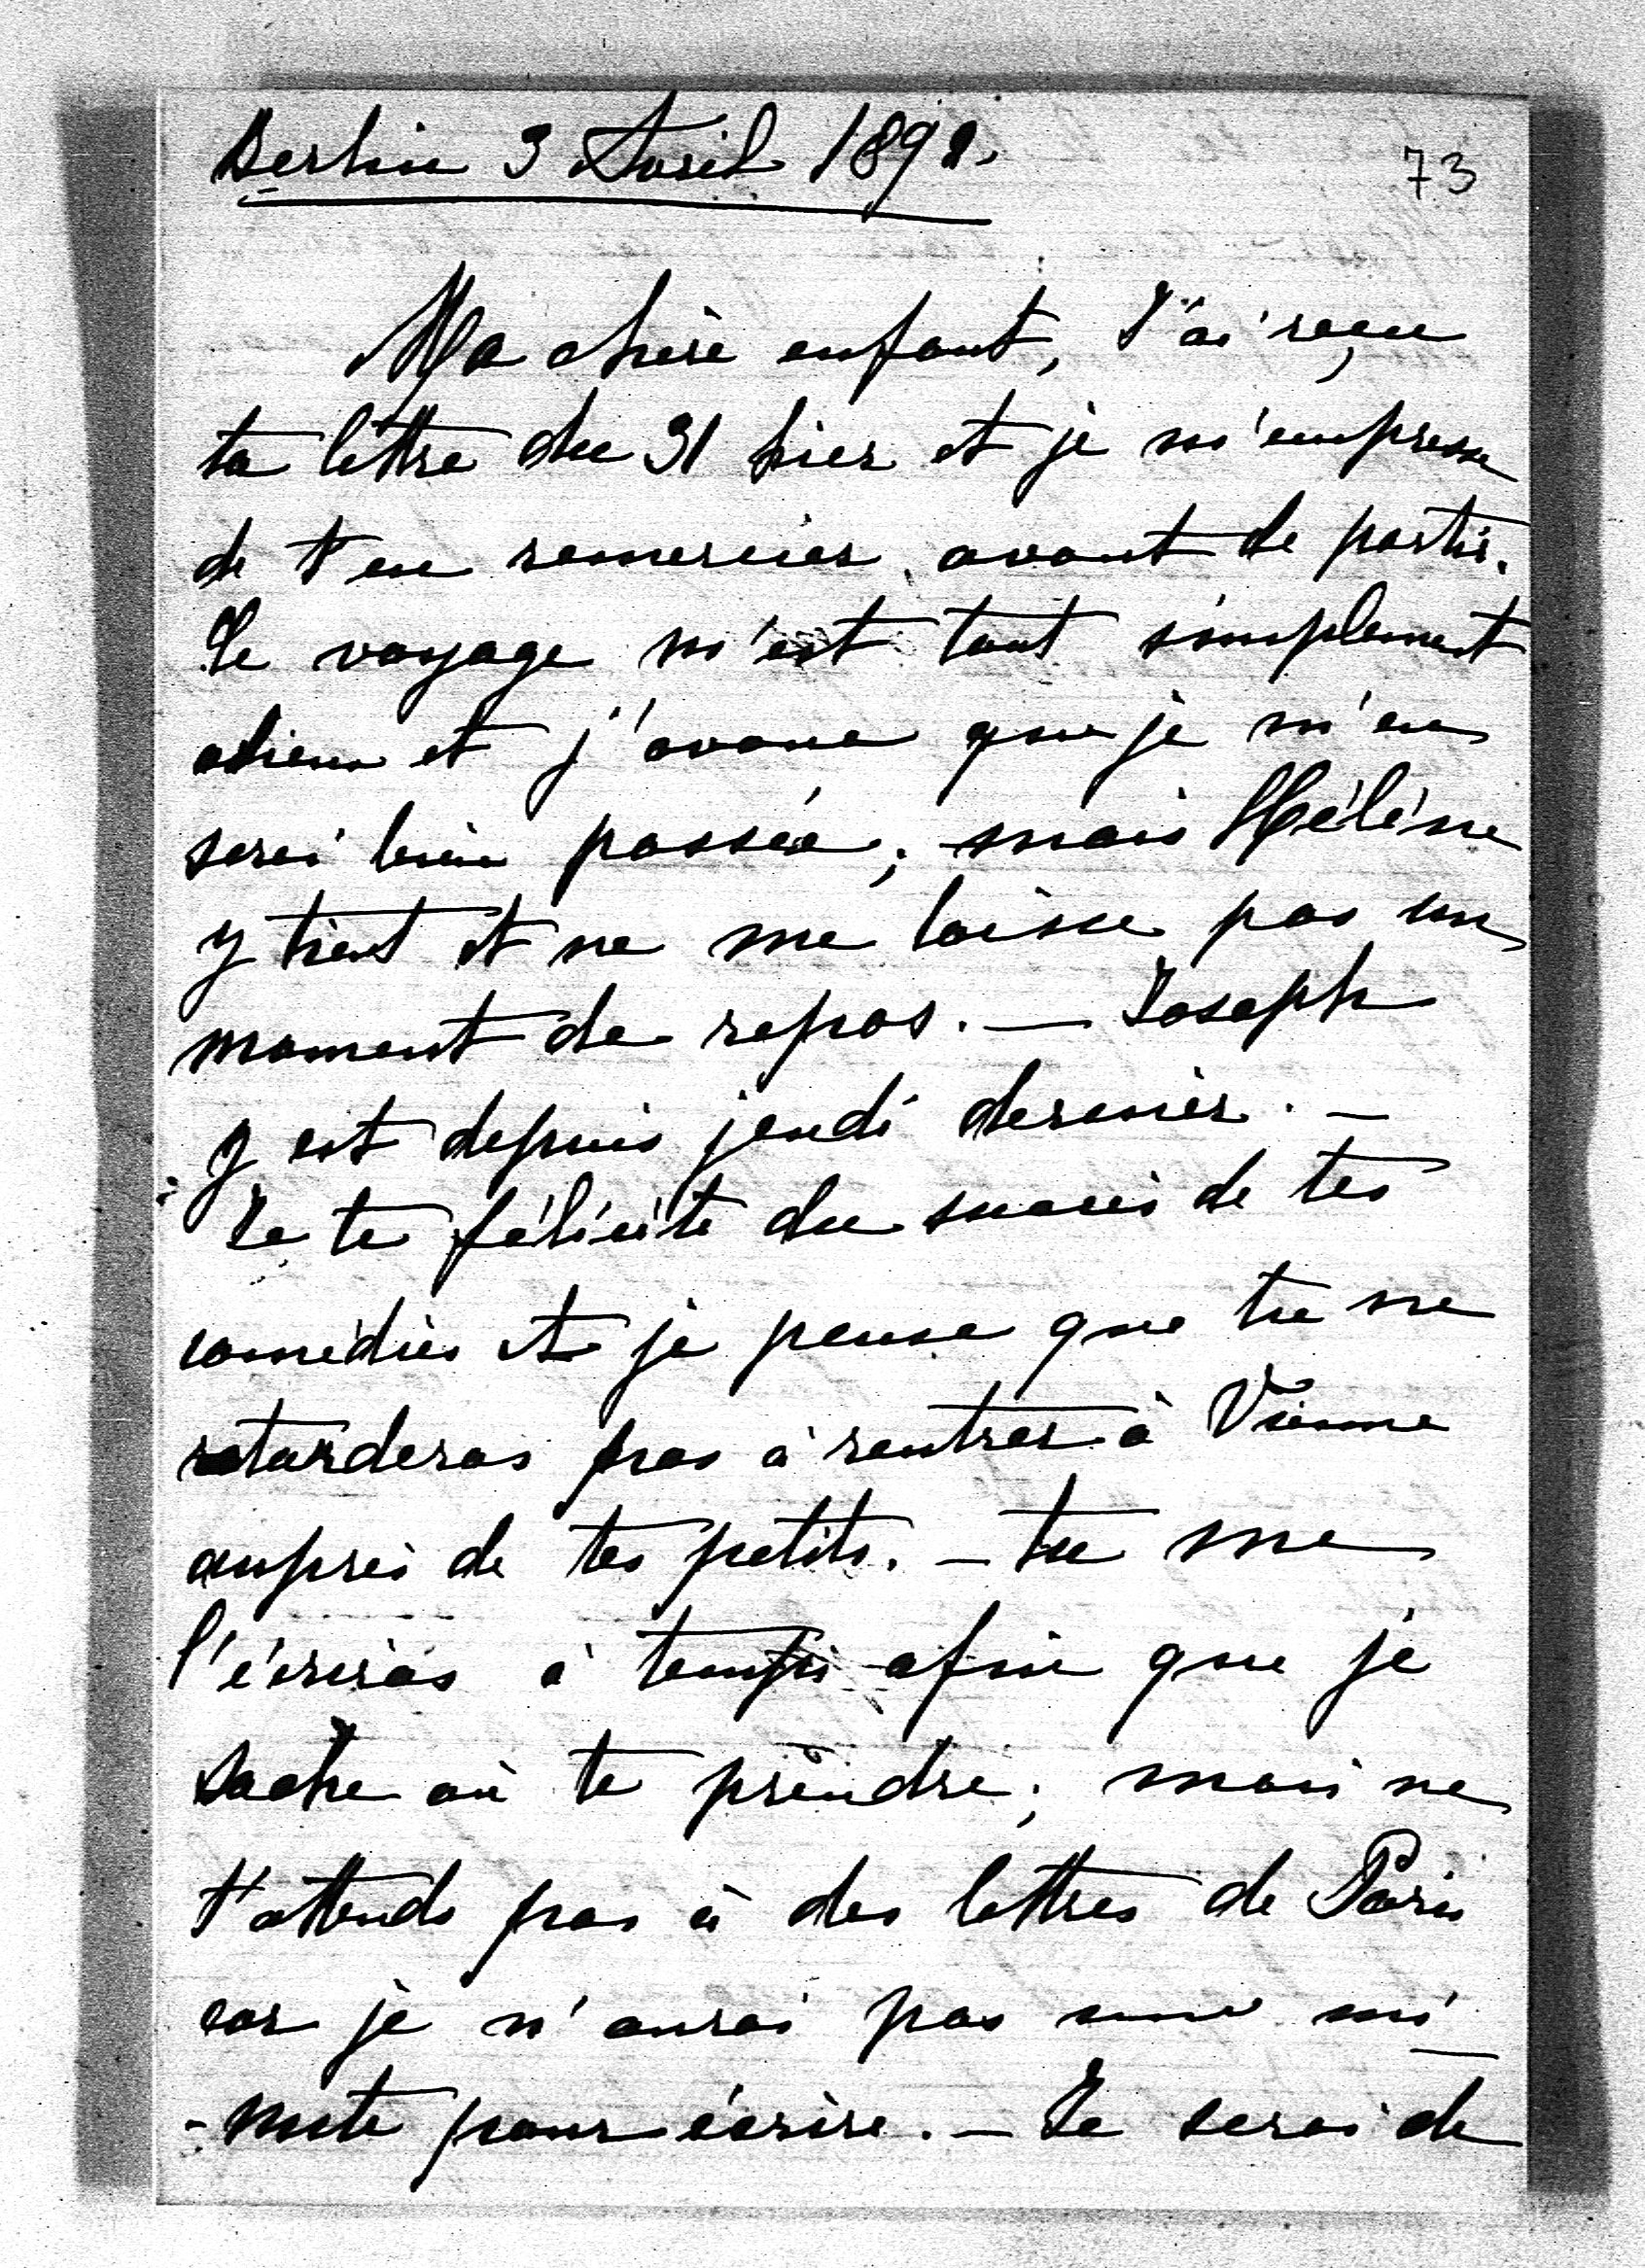 Berlin 3 Avril 1892.
73
Ma chère enfant, J'ai reçu
ta lettre du 31 hier et je m'empresse
de t'en remercier avant de partir.
Le voyage m'est tout simplement
odieux et j'avoue que je m'en
serai bien passée; mais Hélène
y tient et ne me laisse pas un
moment de repos. — Joseph
y est depuis jeudi dernier. —
Je te félicite du succès de tes
comédies et je pense que tu ne
retarderas pas à rentrer à Vienne
auprès de tes petits. — tu me
l'écriras à temps afin que je
sache où te prendre; mais ne
t'attends pas à des lettres de Paris
car je n'aurai pas une mi-
-nute pour écrire. — Je serai de